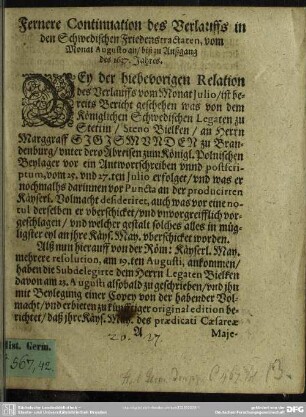 Fernere Continuation des Verlauffs in
den Schwedischen Friedenstractaten, vom
Monat Augusto an/ biß zu Außgang
des 1637. Jahres.
BEy der hiebevorigen Relation
des Verlauffs vom Monat Julio/ ist be-
reits Bericht geschehen was von dem
Königlichen Schwedischen Legaten zu
Stettin/ Steno Bielken/ an Herrn
Marggraff SIGISMUNDEN zu Bran-
denburg/ unter dero Abreisen zum Königl. Polnischen
Beylager vor ein Antwortschreiben unnd postscri-
ptum, vom 25. und 27. ten Julio erfolget/ und was er
nochmalhs darinnen vor Puncta an der producirren
Käyserl. Volmacht desideriret, auch was vor eine no-
tul derselben er überschicket/ und unvorgreifflich vor-
geschlagen/ und welcher gestalt solches alles in müg-
ligster eyl an ihre Käys. May. überschicket worden.
Alß nun hierauff von der Röm: Käyserl. May.
mehrere resolution, am 19. ten Augusti, ankommen/
haben die Subdelegirte dem Herrn Legaten Bielken
davon am 23. Augusti alsobald zu geschrieben/ und ihn
mit Beylegung einer Copey von der habender Vol-
macht/ und erbieten zu künfftiger original edition be-
richtet/ daß ihre Käys. May. des prædicati Cæsareæ
Maje-
Hist. Germ.
567,42